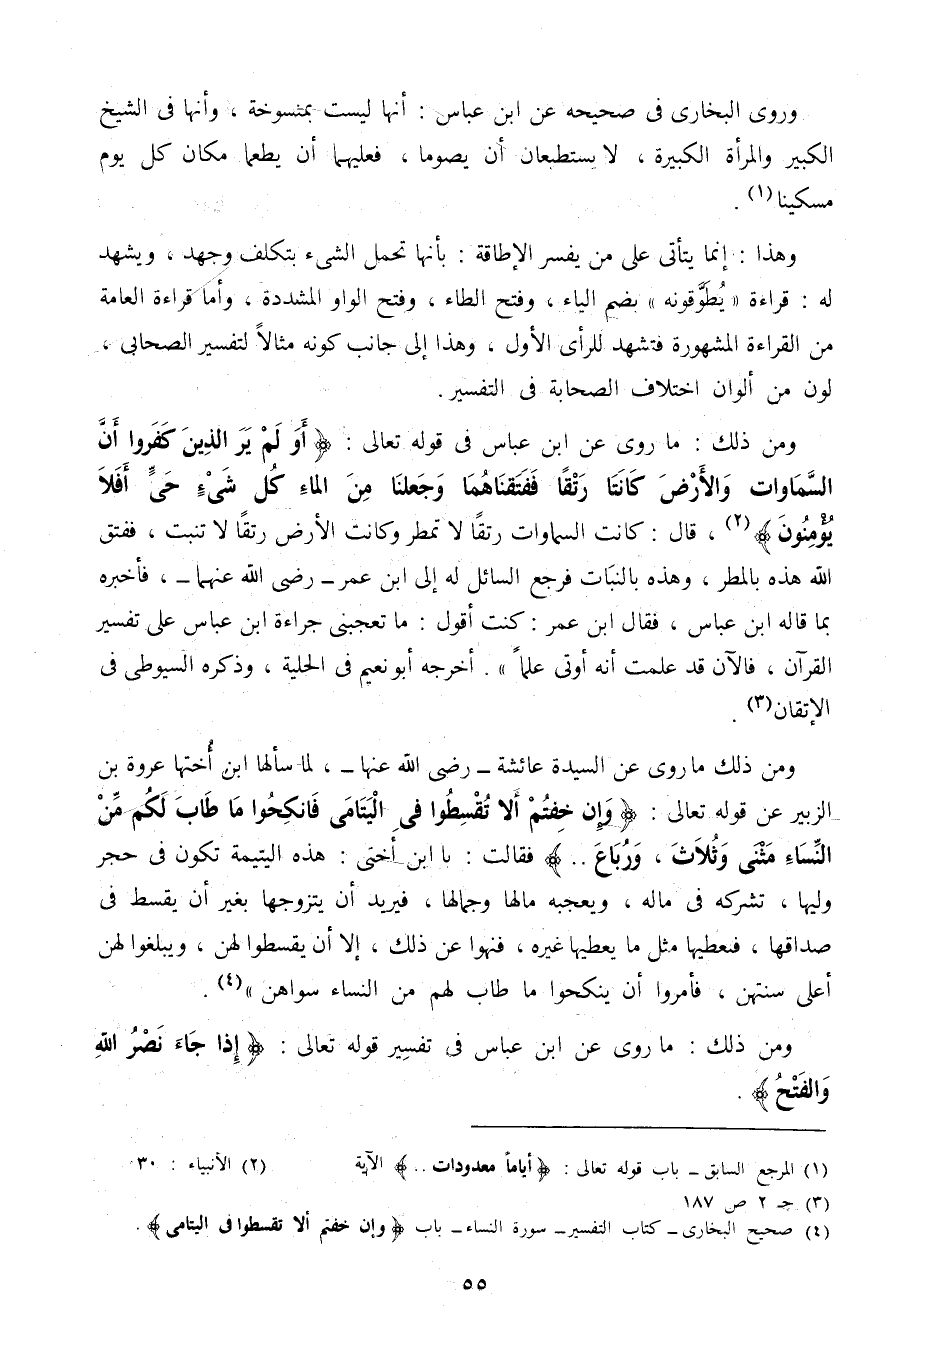 وروى البخارى فى صحيحه عن ابن عباس : أنها ليست بمنسوخة ، وأنها فى الشيخ
الكبير والمرأة الكبيرة ، لا يستطيعان أن يصوما ، فعليهما أن يطعما مكان كل يوم
مسكينا(١) .
وهذا : إنما يتأتى على من يفسر الإطاقة : بأنها تحمل الشىء بتكلف وجهد ، ويشهد
له : قراءة « يُطَوَّقونه » بضم الياء ، وفتح الطاء ، وفتح الواو المشددة ، وأما قراءة العامة
من القراءة المشهورة فتشهد للرأى الأول ، وهذا إلى جانب كونه مثالاً لتفسير الصحابى ،
لون من ألوان اختلاف الصحابة فى التفسير .
ومن ذلك : ما روى عن ابن عباس فى قوله تعالى : ﴿ أَو لَمْ يَر الذِينَ كَفَروا أَنَّ
السَّمَاوات وَالأَرْضَ كَانَتَا رَتْقًا فَفَتَقنَاهُمَا وَجَعلنَا مِنَ الماءِ كُل شَىْءٍ حَىٍّ أَفَلاَ
يُؤْمِنُونَ ﴾(٢) ، قال : كانت السماوات رتقًا لا تمطر وكانت الأرض رتقًا لا تنبت ، ففتق
الله هذه بالمطر ، وهذه بالنبات فرجع السائل له إلى ابن عمر ــ رضى الله عنهما ــ ، فأخبره
بما قاله ابن عباس ، فقال ابن عمر : كنت أقول : ما تعجبنى جراءة ابن عباس على تفسير
القرآن ، فالآن قد علمت أنه أوتى علماً » . أخرجه أبو نعيم فى الحلية ، وذكره السيوطى فى
الإتقان(٣) .
ومن ذلك ما روى عن السيدة عائشة ــ رضى الله عنها ــ ، لما سألها ابن أُختها عروة بن
الزبير عن قوله تعالى : ﴿ وَإِن خِفتُمْ ألا تُقْسِطُوا فى الْيَتَامَى فَانكِحُوا مَا طَابَ لَكُم مِّنْ
النِّسَاءِ مَثْنَى وَثُلاَثَ ، وَرُبَاعَ .. ﴾ فقالت : يا ابن أختى : هذه اليتيمة تكون فى حجر
وليها ، تشركه فى ماله ، ويعجبه مالها وجمالها ، فيريد أن يتزوجها بغير أن يقسط فى
صداقها ، فيعطيها مثل ما يعطيها غيره ، فنهوا عن ذلك ، إلا أن يقسطوا لهن ، ويبلغوا لهن
أعلى سنتهن ، فأمروا أن ينكحوا ما طاب لهم من النساء سواهن »(٤) .
ومن ذلك : ما روى عن ابن عباس فى تفسير قوله تعالى : ﴿ إِذا جَاءَ نَصْرُ اللهِ
وَالفَتْحُ ﴾ .
(١) المرجع السابق ــ باب قوله تعالى : ﴿ أياماً معدودات .. ﴾ الآية (٢) الأنبياء : ٣٠
(٣) جـ ٢ ص ١٨٧
(٤) صحيح البخارى ــ كتاب التفسير ــ سورة النساء ــ باب ﴿ وإن خفتم ألا تقسطوا فى اليتامى ﴾ .
٥٥